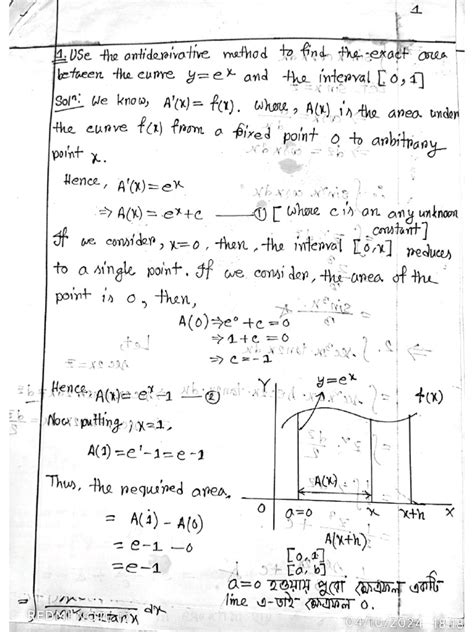 1
1. Use the antiderivative method to find the exact area
between the curve y=eˣ and the interval [0,1]
Solⁿ: We know, A'(x) = f(x). where, A(x) is the area under
the curve f(x) from a fixed point 0 to arbitrary
point x.
Hence, A'(x) = eˣ
⇒ A(x) = eˣ+c ——① [where c is an any unknown
constant]
If we consider, x=0, then, the interval [0,x] reduces
to a single point. If we consider, the area of the
point is 0, then,
A(0)⇒e⁰+c=0
⇒1+c=0
⇒c=-1
Hence, A(x) = eˣ-1 —②
Now putting, x=1,
A(1)=e¹-1=e-1
Thus, the required area,
= A(1) - A(0)
= e-1 -0
= e-1
Y
y=eˣ
f(x)
A(x)
O a=0 x x+h X
A(x+h)
[0,1]
[a,b]
a=0 হওয়ায় পুরো ক্ষেত্রফল একটি
line এ-তাই ক্ষেত্রফল 0.
dx
04/10/2024 18:18